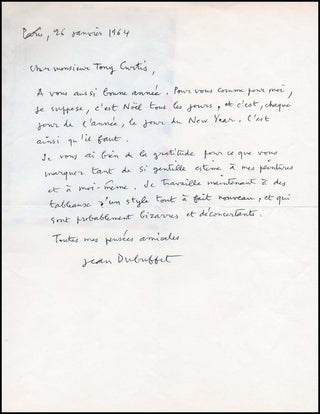 Paris, 26 janvier 1964
Cher monsieur Tony Curtis,
A vous aussi bonne année. Pour vous comme pour moi,
je suppose, c'est Noël tous les jours, et c'est, chaque
jour de l'année, le jour du New Year. C'est
ainsi qu'il faut.
Je vous ai bien de la gratitude pour ce que vous
marquez tant de si gentille estime à mes peintures
et à moi-même. Je travaille maintenant à des
tableaux d'un style tout à fait nouveau, et qui
sont probablement bizarres et déconcertants.
Toutes mes pensées amicales
Jean Dubuffet